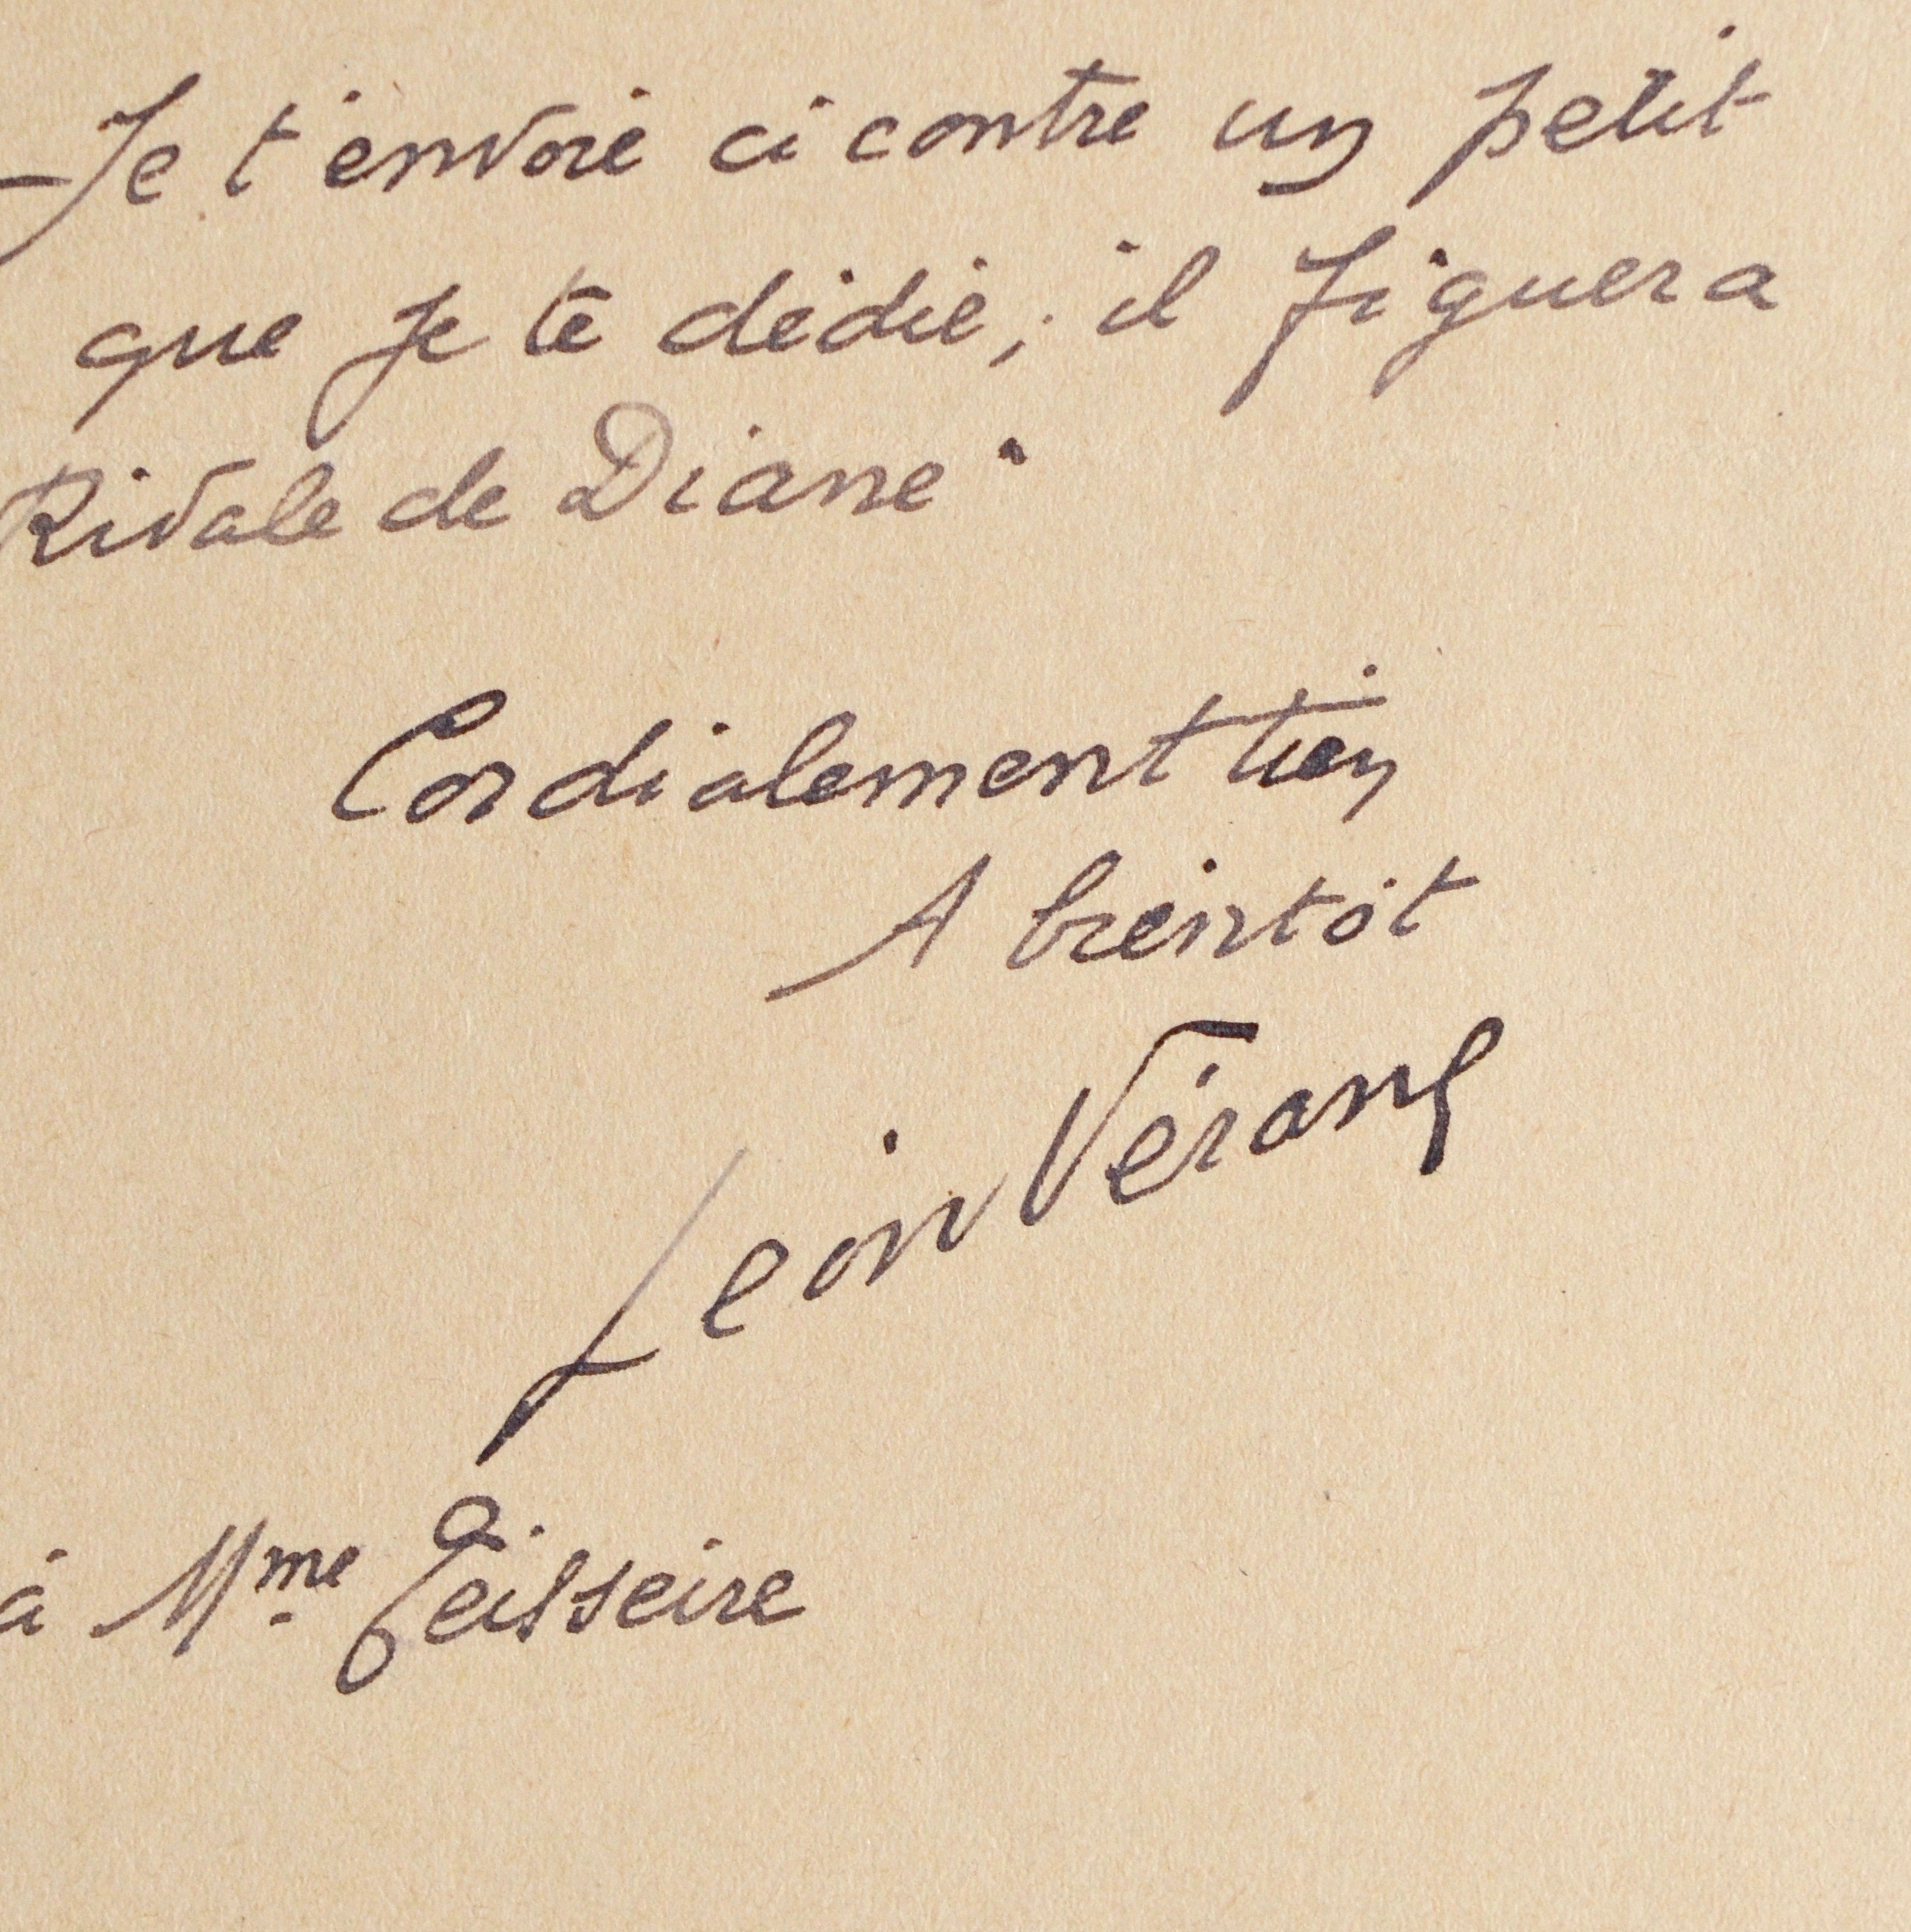 Je t'envoie ci contre un petit
que je te dédie, il figuera
Rivale de Diane"
Cordialement tien
A bientôt
Léon Vérane
à Mme Teisseire